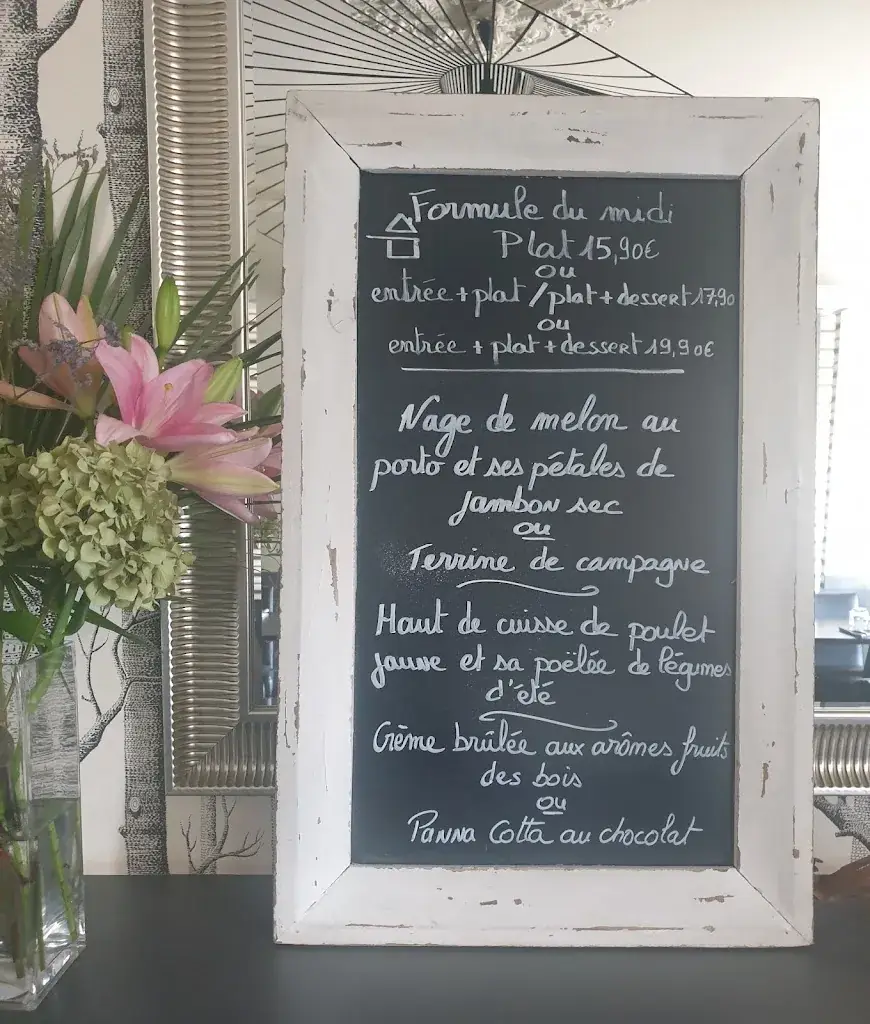 Formule du midi
Plat 15,90€
ou
entrée + plat / plat + dessert 17,90
ou
entrée + plat + dessert 19,90€
Nage de melon au
porto et ses pétales de
jambon sec
ou
Terrine de campagne
Haut de cuisse de poulet
jaune et sa poëlée de légumes
d'été
Crème brûlée aux arômes fruits
des bois
ou
Panna Cotta au chocolat